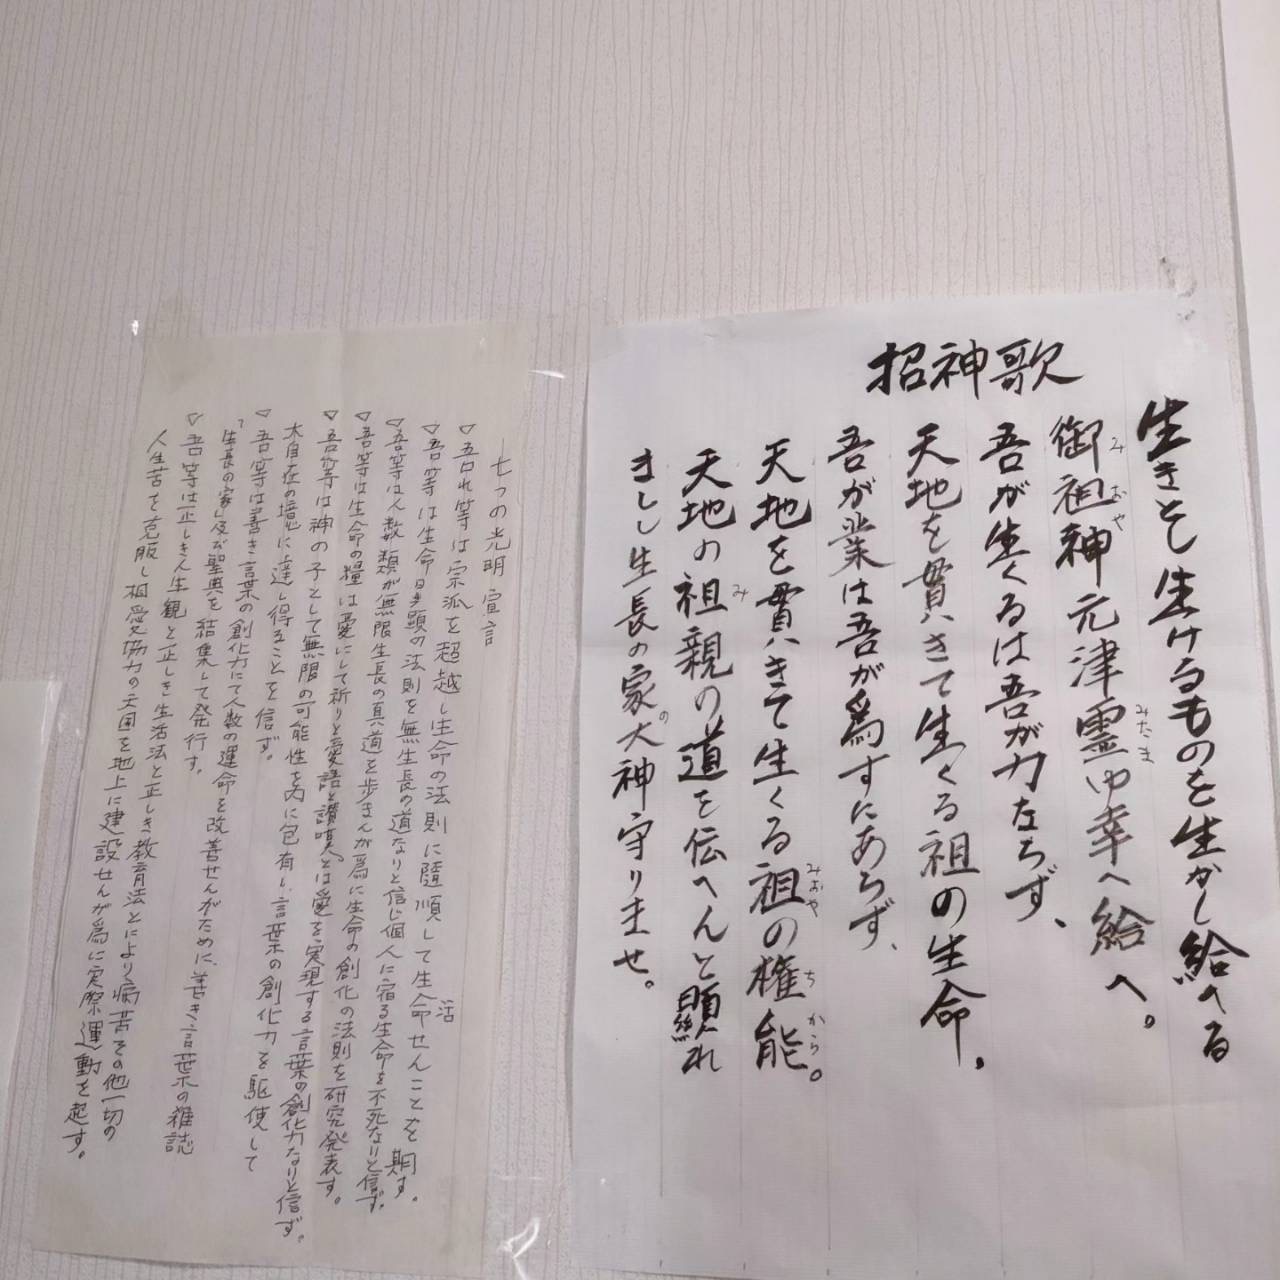 招神歌
生きとし生けるものを生かし給へる
御祖神元津霊ゆ幸へ給へ。
みおや
みたま
吾が生くるは吾が力ならず、
天地を貫きて生くる祖の生命。
吾が業は吾が為すにあらず、
天地を貫きて生くる祖の権能。
みおや
ちから
天地の祖親の道を伝へんと顕れ
み
ましし生長の家大神守りませ。
の
七つの光明宣言
▽吾れ等は宗派を超越し生命の法則に随順して生命せんことを期す。
活
▽吾等は生命顕の法則を無生長の道なりと信じ個人に宿る生命を不死なりと信ず
▽吾等は人類が無限生長の真道を歩まんが為に生命の創化の法則を研究発表す。
▽吾等は生命の糧は愛にして祈りと愛語と讃嘆とは愛を実現する言葉の創化力なりと信ず。
▽吾等は神の子として無限の可能性を内に包有し、言葉の創化力を駆使して
大自在の境に達し得ることを信ず。
▽吾等は善き言葉の創化力にて人類の運命を改善せんがために、善き言葉の雑誌
「生長の家」及び聖典を結集して発行す。
▽吾等は正しき人生観と正しき生活法と正しき教育法とにより病苦その他一切の
人生苦を克服し相愛協力の天国を地上に建設せんが為に実際運動を起す。